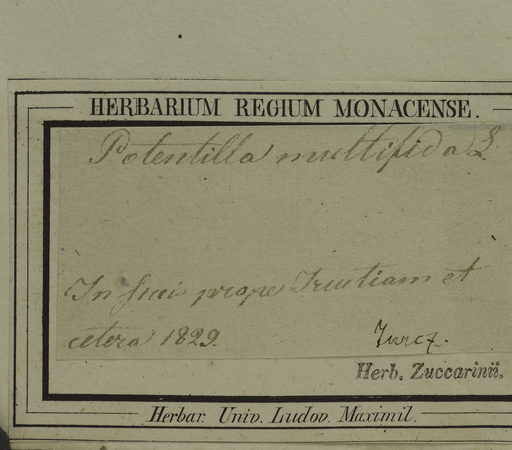 HERBARIUM REGIUM MONACENSE.
Potentilla multifida L.
In siccis prope Ircutiam et
cetera 1829.
Turcz.
Herb. Zuccarinii.
Herbar. Univ. Ludov. Maximil.